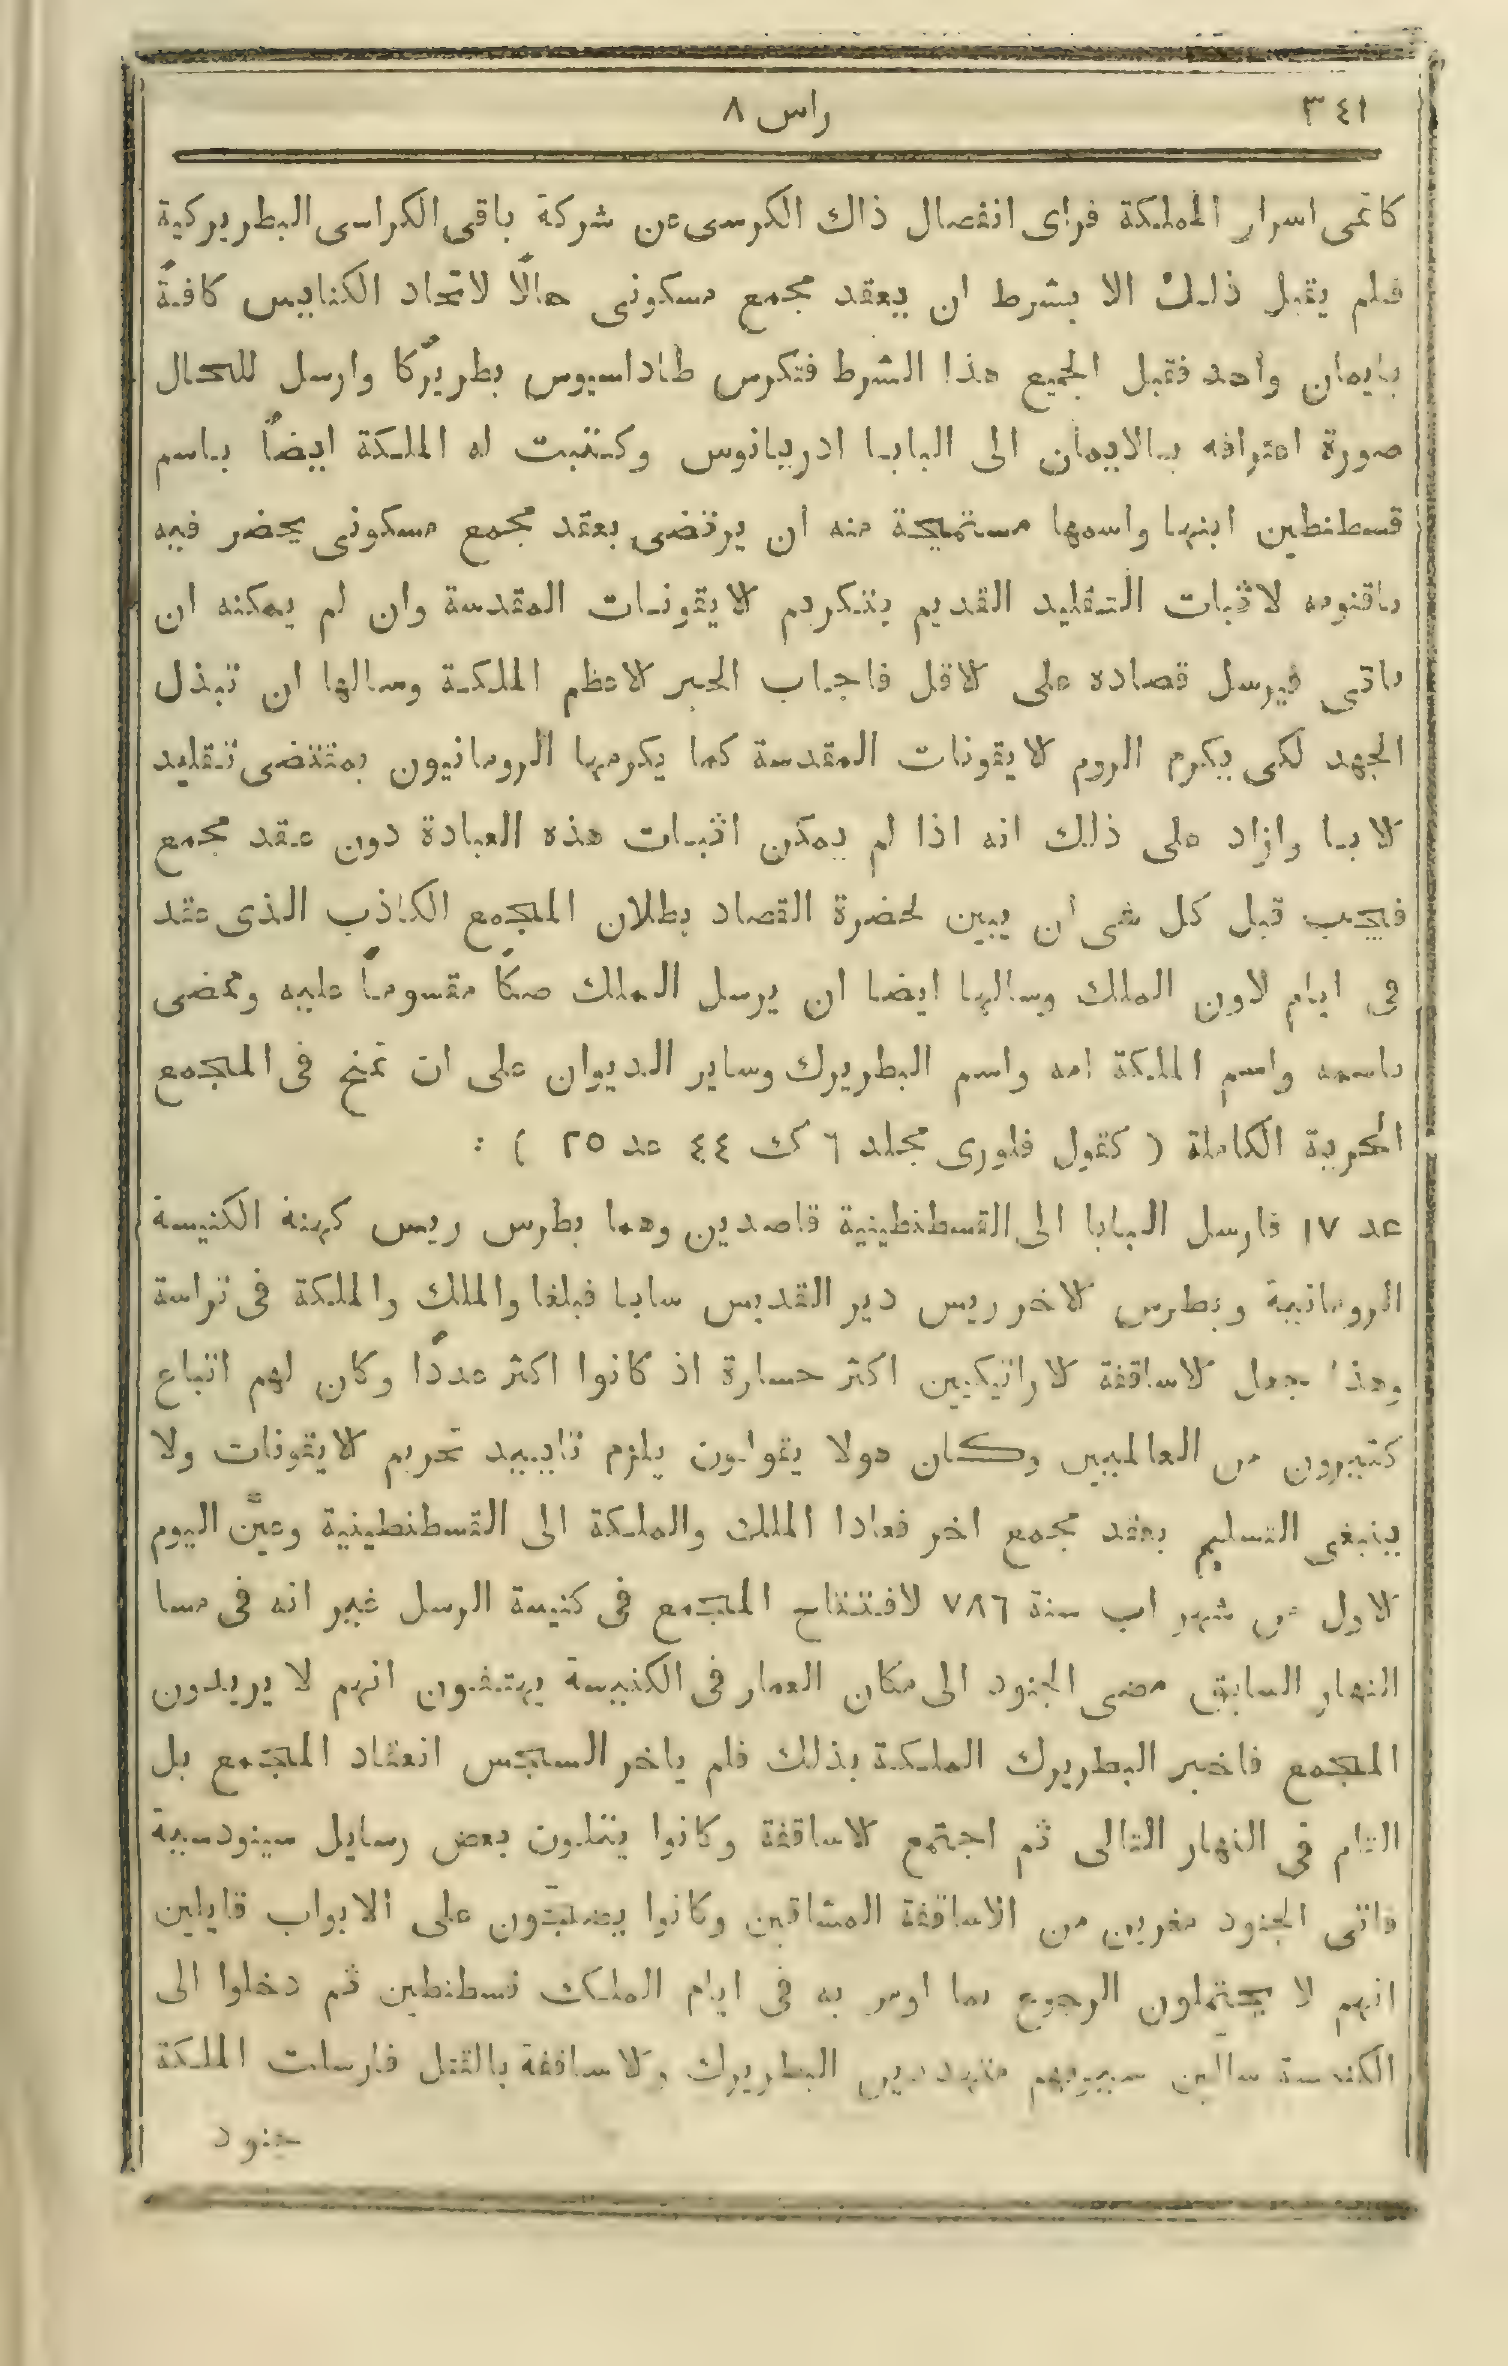 ٣٤١ راس ٨
كاتمى اسرار المملكة فراى انفصال ذاك الكرسى عن شركة باقى الكراسى البطريركية
فلم يقبل ذلك الا بشرط ان يعقد مجمع مسكونى حالًا لاتحاد الكنايس كافةً
بايمان واحد فقبل الجميع هذا الشرط فتكرس طاداسيوس بطريركًا وارسل للحال
صورة اعترافه بالايمان الى البابا ادريانوس وكتبت له الملكة ايضاً باسم
قسطنطين ابنها واسمها مستميحة منه ان يرتضى بعقد مجمع مسكونى يحضر فيه
باقنومه لاثبات التقليد القديم بتكريم الايقونات المقدسة وان لم يمكنه ان
ياتى فيرسل قصاده على الاقل فاجاب الحبر الاعظم الملكة وسالها ان تبذل
الجهد لكى يكرم الروم الايقونات المقدسة كما يكرمها الرومانيون بمقتضى تقليد
الابا وازاد على ذلك انه اذا لم يمكن اثبات هذه العبادة دون عقد مجمع
فيجب قبل كل شى ان يبين لحضرة القصاد بطلان المجمع الكاذب الذى عقد
فى ايام لاون الملك وسالها ايضا ان يرسل الملك صكاً مقسوماً عليه وممضى
باسمه واسم الملكة امه واسم البطريرك وساير الديوان على ان تمنح فى المجمع
الحرية الكاملة ( كقول فلورى مجلد ٦ ك ٤٤ عد ٢٥ ) :
عد ١٧ فارسل البابا الى القسطنطينية قاصدين وهما بطرس ريس كهنة الكنيسة
الرومانية وبطرس الاخر ريس دير القديس سابا فبلغا والملك والملكة فى تراسة
وهذا جعل الاساقفة الاراتيكيين اكثر جسارة اذ كانوا اكثر عددًا وكان لهم اتباع
كثيرون من العالميين وكان هولا يقولون يلزم تاييد تحريم الايقونات ولا
ينبغى التسليم بعقد مجمع اخر فعادا الملك والملكة الى القسطنطينية وعيّن اليوم
الاول من شهر اب سنة ٧٨٦ لافتتاح المجمع فى كنيسة الرسل غير انه فى مسا
النهار السابق مضى الجنود الى مكان العمار فى الكنيسة يهتفون انهم لا يريدون
المجمع فاخبر البطريرك الملكة بذلك فلم ياخر السجس انعقاد المجمع بل
التام فى النهار التالى ثم اجتمع الاساقفة وكانوا يتلون بعض رسايل سينودسية
فاتى الجنود مغرين من الاساقفة المشاقين وكانوا يضجّون على الابواب قايلين
انهم لا يحتملون الرجوع بما اومر به فى ايام الملك قسطنطين ثم دخلوا الى
الكنيسة سالّين سيوفهم متهددين البطريرك والاساقفة بالقتل فارسلت الملكة
جنود